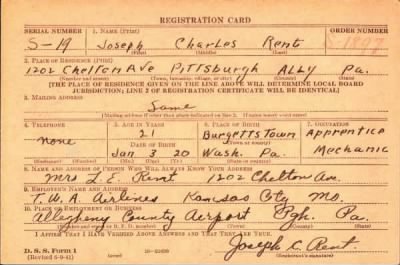 REGISTRATION CARD
SERIAL NUMBER 1. NAME (Print) ORDER NUMBER
S-19 Joseph Charles Rent S-1898
(First) (Middle) (Last)
2. PLACE OF RESIDENCE (Print)
1202 Chelton Ave Pittsburgh Ally Pa.
(Number and street) (Town, township, village, or city) (County) (State)
[THE PLACE OF RESIDENCE GIVEN ON THE LINE ABOVE WILL DETERMINE LOCAL BOARD
JURISDICTION; LINE 2 OF REGISTRATION CERTIFICATE WILL BE IDENTICAL]
3. MAILING ADDRESS
Same
4. TELEPHONE 5. AGE IN YEARS 6. PLACE OF BIRTH 7. OCCUPATION
none 21 Burgettstown Apprentice
DATE OF BIRTH (Town or county)
Jan 3 20 Wash. Pa. Mechanic
(Exchange) (Number) (Mo.) (Day) (Yr.) (State or country)
8. NAME AND ADDRESS OF PERSON WHO WILL ALWAYS KNOW YOUR ADDRESS
Mrs L. E. Rent 1202 Chelton Ave.
9. EMPLOYER'S NAME AND ADDRESS
T.W.A. Airlines Kansas City Mo.
10. PLACE OF EMPLOYMENT OR BUSINESS
Allegheny County Airport Pgh. Pa.
(Number and street or R. F. D. number) (Town) (County) (State)
I AFFIRM THAT I HAVE VERIFIED ABOVE ANSWERS AND THAT THEY ARE TRUE.
D. S. S. Form 1
(Revised 6-9-41) (over) Joseph C. Rent